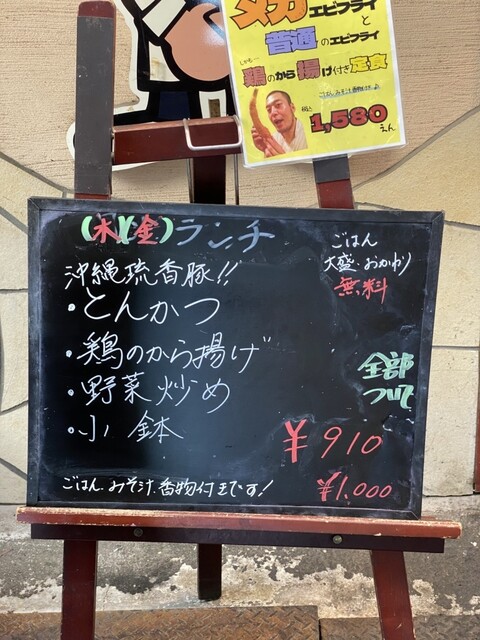 メガエビフライと
普通のエビフライ
しかも…
鶏のから揚げ付き定食
ごはんみそ汁香物付き♪
税込
1,580えん
(木)と(金)ランチ
ごはん
大盛・おかわり
無料
沖縄琉香豚!!
・とんかつ
・鶏のから揚げ
・野菜炒め
・小鉢
全部
ついて
¥910
¥1,000
ごはん.みそ汁.香物付きです!